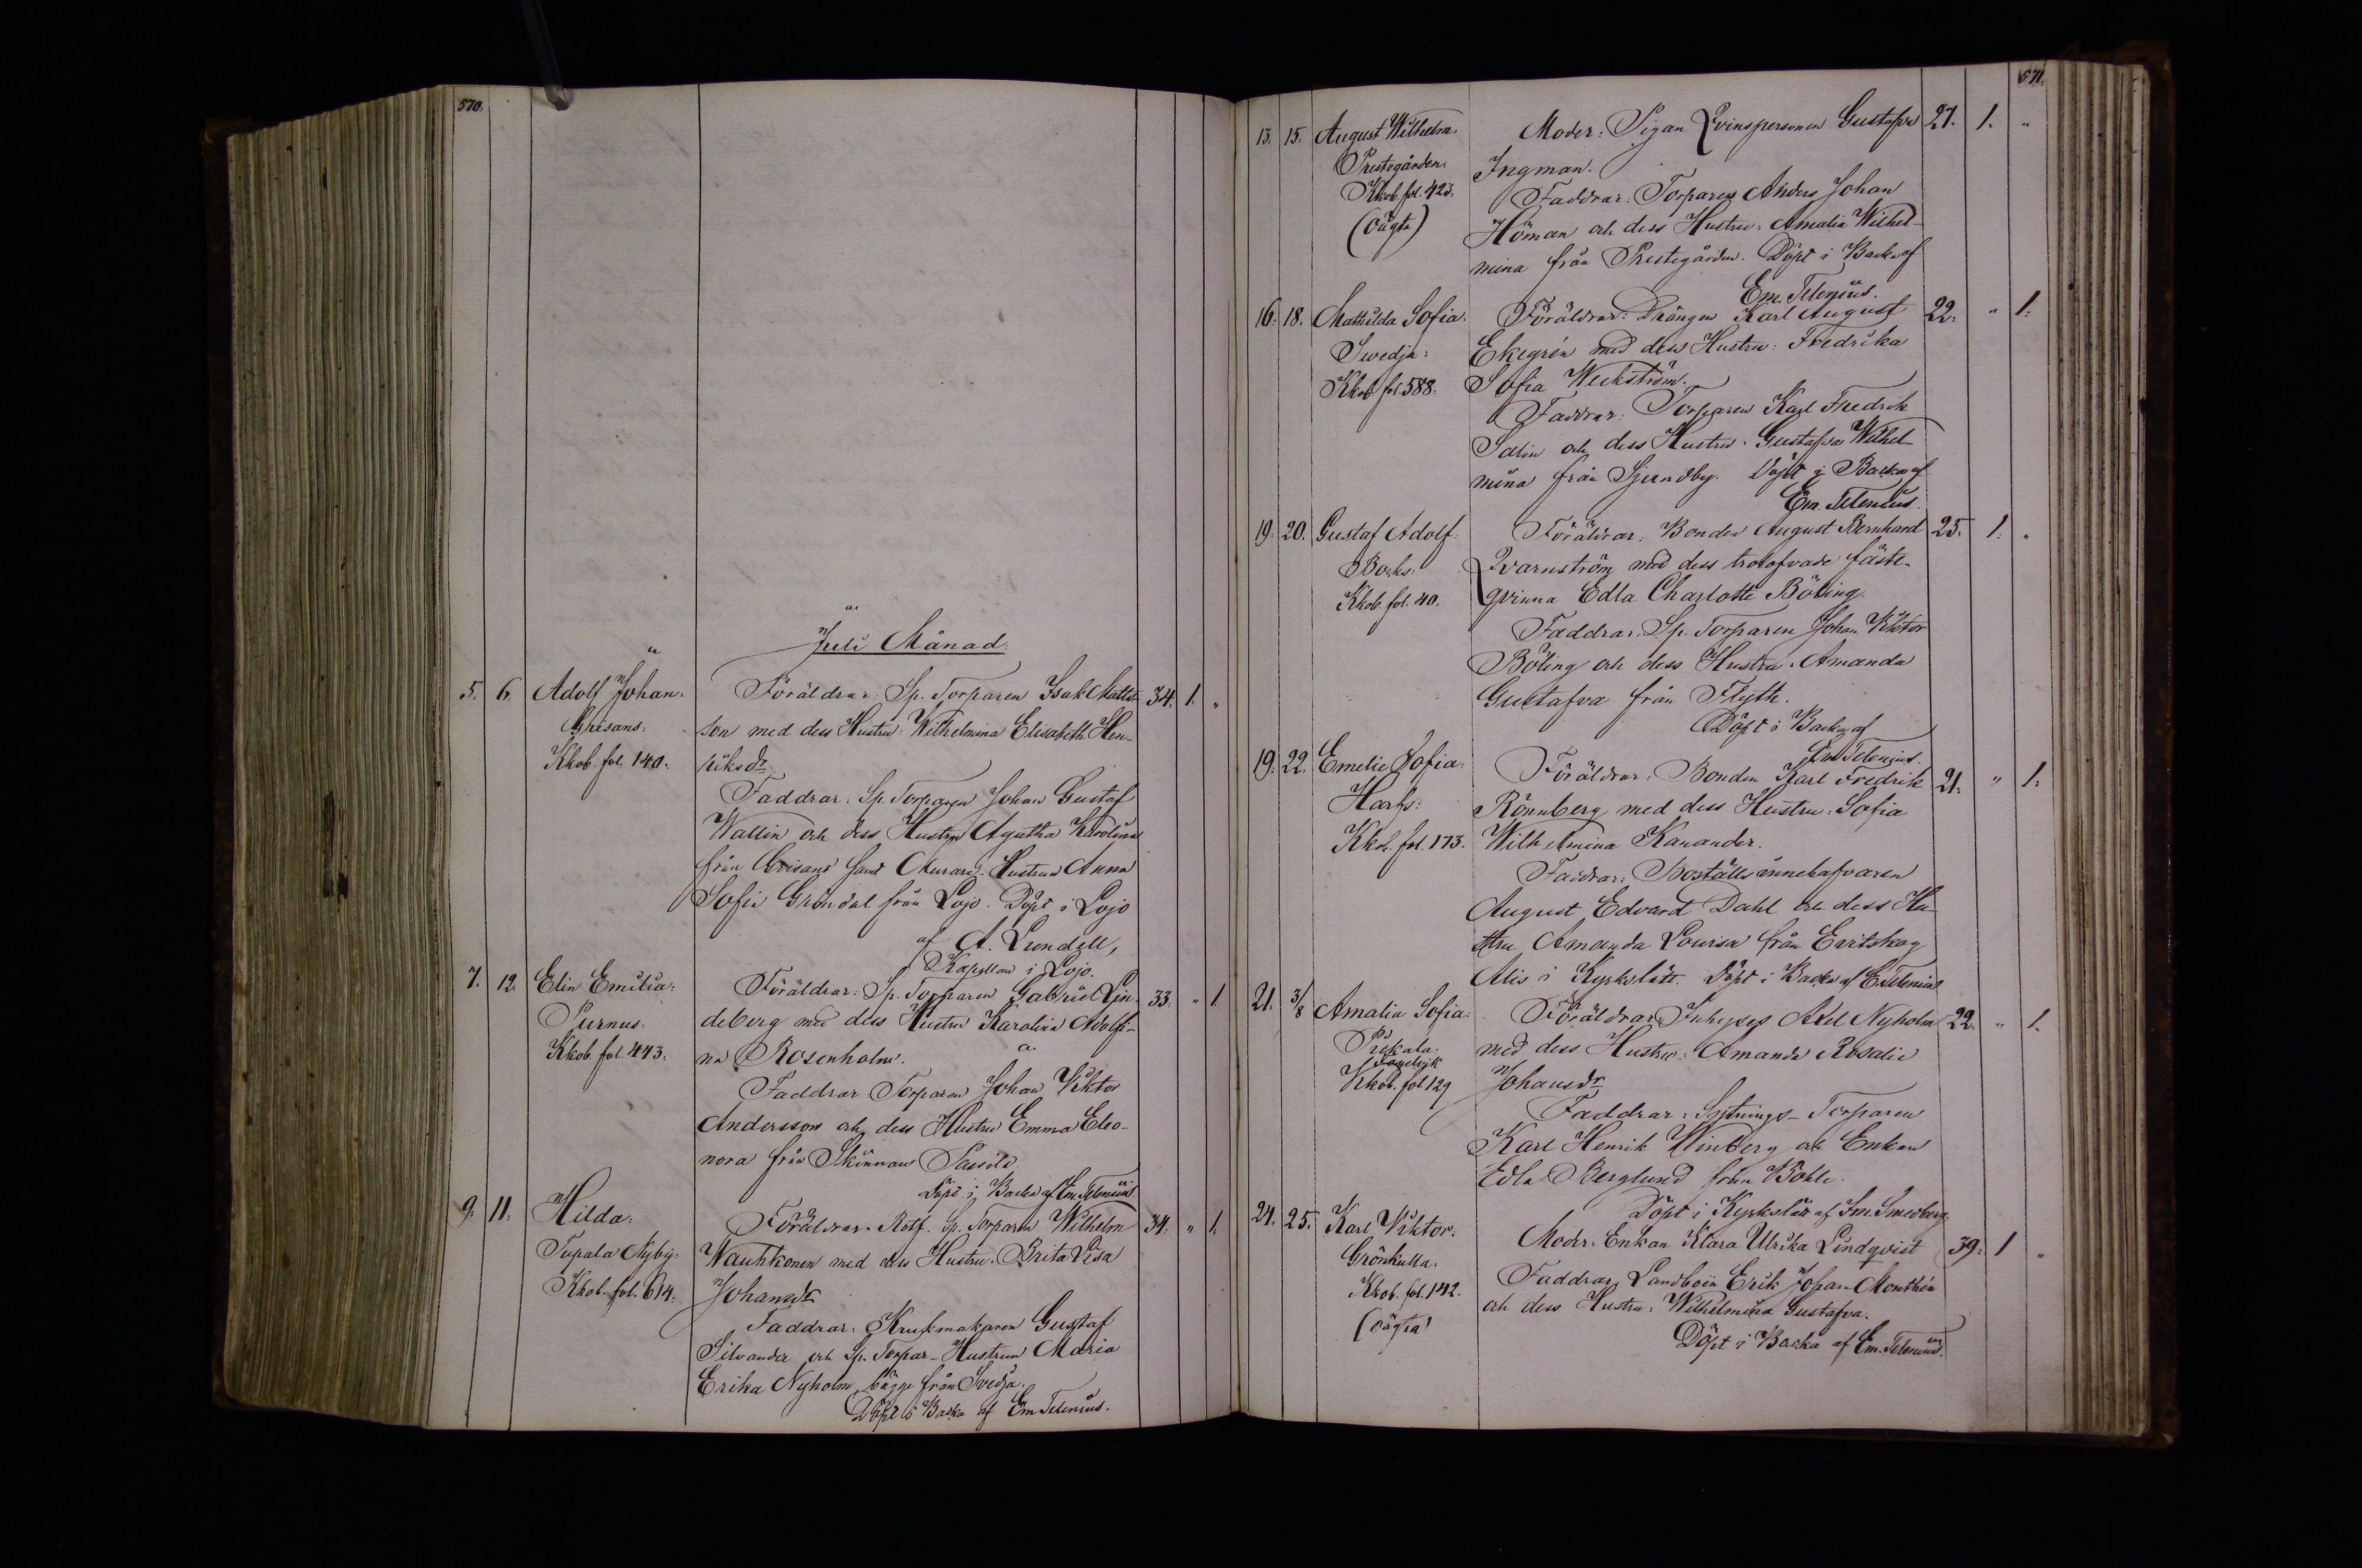 570.
Juli Månad.
5. 6. Adolf Johan. Föräldrar: Sp. Torparen Isak Matts- 34. 1. "
Grisans. son med dess Hustru: Wilhelmina Elisabeth Hen-
Kkob. fol. 140. riksdr
Faddrar: Sp. Torparen Johan Gustaf
Wallin och dess Hustru Agatha Karolina
från Grisans samt Murare-Hustrun Anna
Sofia Gröndal från Lojo. Döpt i Lojo
af A. Lundell,
Kapellan i Lojo.
7. 12. Elin Emilia: Föräldrar: Sp. Torparen Gabriel Lin- 33. " 1
Purnus. deberg med dess Hustru Karolina Adolfi-
Kkob. fol. 443. na Rosenholm.
Faddrar Torparen Johan Viktor
Andersson och dess Hustru Emma Eleo-
nora från Skinnars Passila
Döpt i Backa af Em. Telenius.
9. 11. Hilda. Föräldrar: Rotf. Sp. Torparen Wilhelm 34. " 1.
Tupala Nyby: Wauhkonen med dess Hustru: Brita Lisa
Kkob. fol. 614. Johansdr
Faddrar: Krukmakaren Gustaf
Silvander och Sp. Torpar-Hustrun Maria
Erika Nyholm, bägge från Svedja.
Döpt i Backa af Em Telenius.
571.
13. 15. August Wilhelm. Moder: Pigan Qvinspersonen Gustafva 27. 1. "
Prestegården. Ingman.
Kkob. fol. 423. Faddrar: Torparen Anders Johan
(Oägta) Höman och dess Hustru: Amalia Wilhel-
mina från Prestegården. Döpt i Backa af
Em. Telenius.
16. 18. Mathilda Sofia. Föräldrar: Drängen Karl August 22. " 1.
Swedja: Ekegrén med dess Hustru: Fredrika
Kkob fol. 588. Sofia Weckström.
Faddrar: Torparen Karl Fredrik
Salin och dess Hustru: Gustafva Wilhel-
mina från Sjundby. Döpt i Backa af
Em. Telenius.
19. 20. Gustaf Adolf. Föräldrar: Bonden August Bernhard 25. 1. "
Bocks. Qvarnström med dess trolofvade fäste-
Kkob. fol. 40. qvinna Edla Charlotte Böling.
Faddrar: Sp. Torparen Johan Viktor
Böling och dess Hustru: Amanda
Gustafva från Flyth.
Döpt i Backa af
Em Telenius.
19. 22. Emelie Sofia: Föräldrar: Bonden Karl Fredrik 21. " 1.
Harfs: Rönnberg med dess Hustru: Sofia
Kkob. fol. 173. Wilhelmina Kanander.
Faddrar: Boställs innehafvaren
August Edvard Dahl och dess Hu-
stru Amanda Lovisa från Evitskog
Alis i Kyrkslätt. Döpt i Backa af E. Telenius
21. 3/8 Amalia Sofia: Föräldrar: Inhyses Axel Nyholm 22. " 1.
Pickala. med dess Hustru: Amanda Rosalie
Kkob. fol 129 Johansdr
Faddrar: Sytnings-Torparen
Karl Henrik Winberg och Enkan
Edla Berglund från Böhle.
Döpt i Kyrkslätt af Im. Smedberg.
24. 25. Karl Viktor. Moder: Enkan Klara Ulrika Lindqvist 39. 1 "
Grönkulla. Faddrar, Landboen Erik Johan Monthén
Kkob. fol. 142. och dess Hustru: Wilhelmina Gustafva.
(oägta) Döpt i Backa af Em. Telenius.